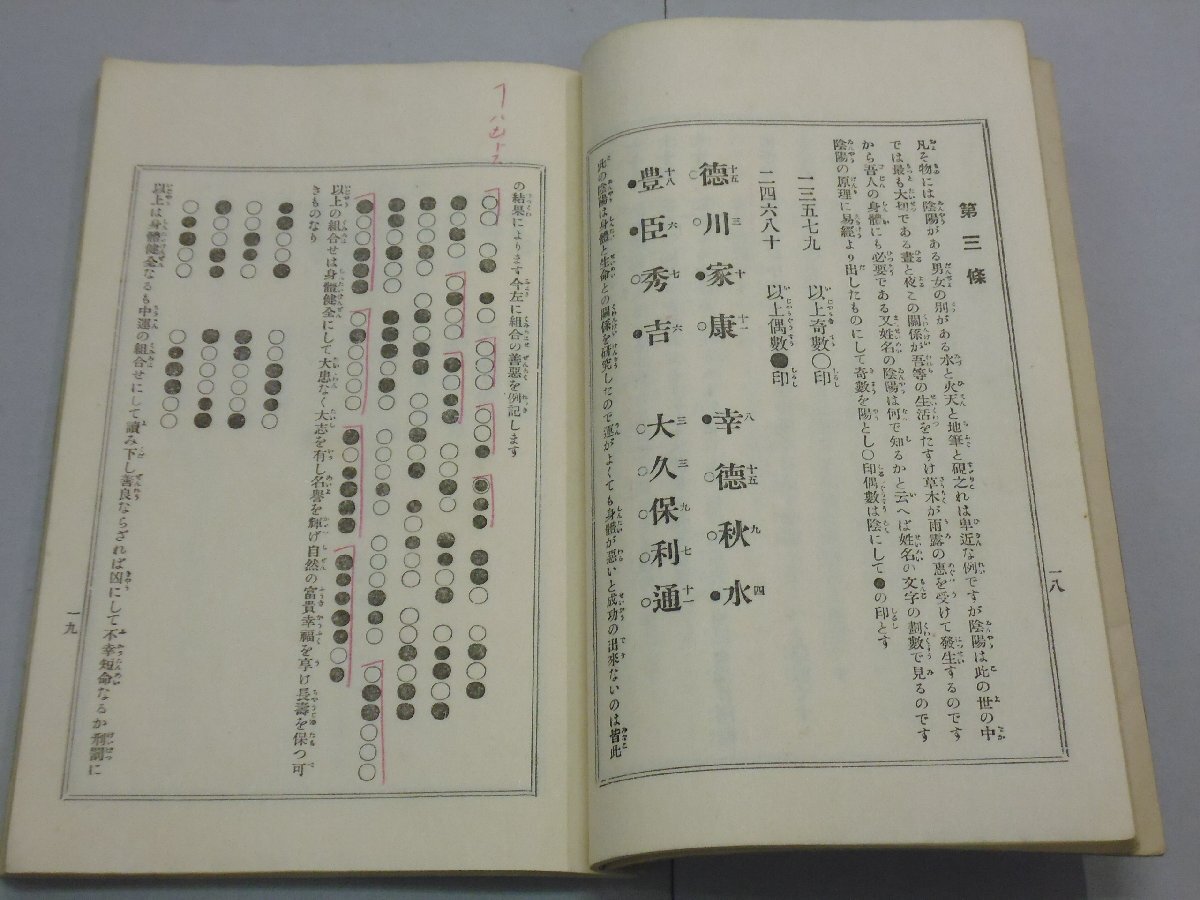 第三條
凡そ物には陰陽がある男女の別がある水と火天と地筆と硯之れは卑近な例ですが陰陽は此の世の中
では最も大切である晝と夜この關係が吾等の生活をたすけ草木が雨露の惠を受けて發生するのです
から吾人の身體にも必要である又姓名の陰陽は何で知るかと云へば姓名の文字の劃數で見るのです
陰陽の原理に易經より出したものにして奇數を陽とし〇印偶數は陰にして●の印とす
一三五七九 以上奇數〇印
二四六八十 以上偶數●印
德十五〇川三〇家十●康十一〇 幸八●德十五〇秋九〇水四●
豊十八●臣六●秀七〇吉六● 大三〇久三〇保九〇利七〇通十一〇
此の陰陽は身體と生命との關係を硏究したので運がよくても身體が惡いと成功の出來ないのは皆此
一八
の結果によります今左に組合の善惡を例記します
以上の組合せは身體健全にして大患なく大志を有し名譽を輝げ自然の富貴幸福を享け長壽を保つ可
きものなり
以上は身體健全なるも中運の組合せにして讀み下し善良ならざれば凶にして不幸短命なるか刑罰に
一九